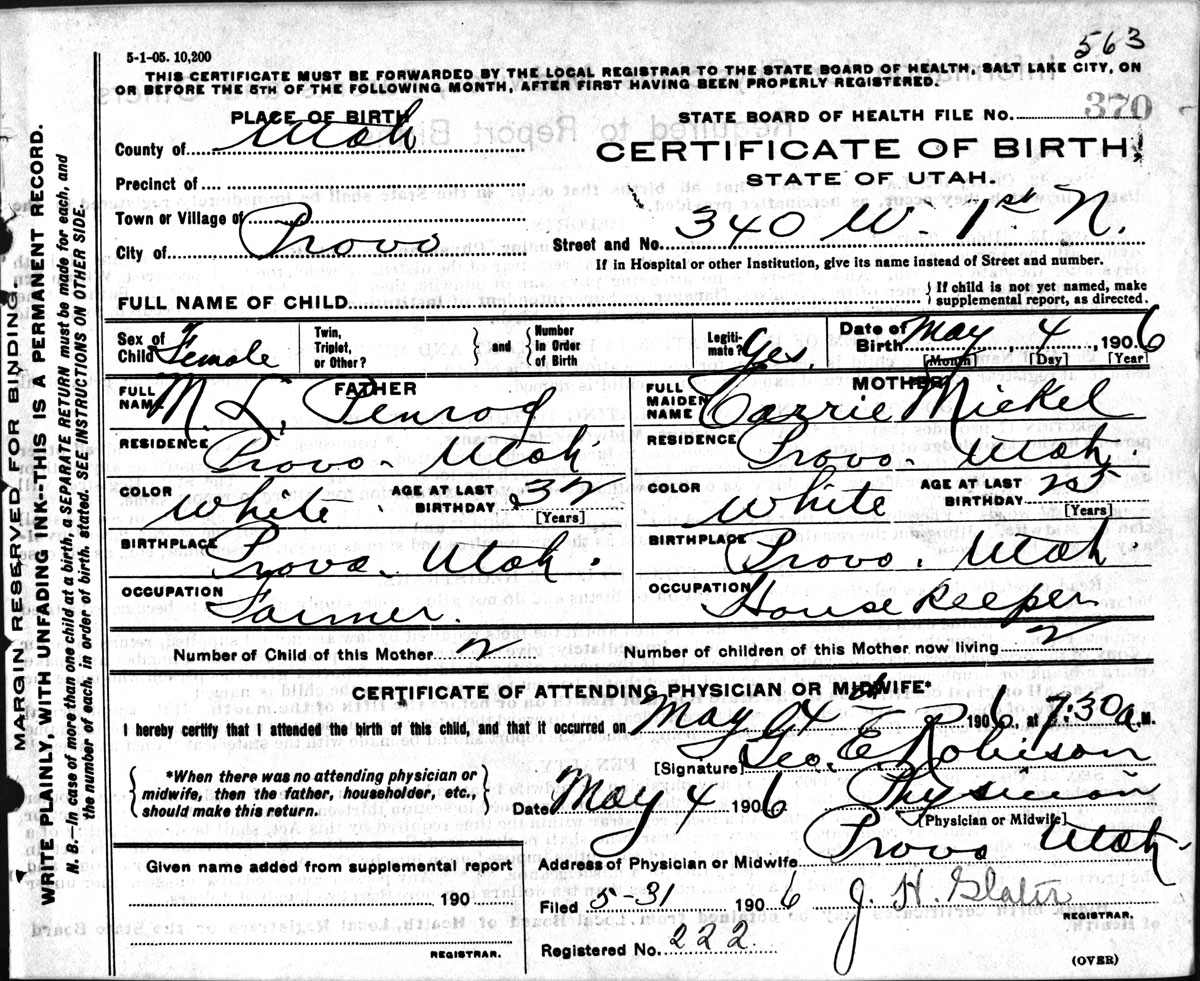 563
5-1-05. 10,200
THIS CERTIFICATE MUST BE FORWARDED BY THE LOCAL REGISTRAR TO THE STATE BOARD OF HEALTH, SALT LAKE CITY, ON
OR BEFORE THE 5TH OF THE FOLLOWING MONTH, AFTER FIRST HAVING BEEN PROPERLY REGISTERED.
PLACE OF BIRTH
STATE BOARD OF HEALTH FILE No. 370
County of Utah
CERTIFICATE OF BIRTH
STATE OF UTAH.
Precinct of
Town or Village of
City of Provo
Street and No. 340 W. 1st N.
If in Hospital or other Institution, give its name instead of Street and number.
FULL NAME OF CHILD
If child is not yet named, make
supplemental report, as directed.
Sex of Child Female
Twin, Triplet, or Other?
and
Number in Order of Birth
Legiti-mate? Yes.
Date of Birth May 4 1906
[Month] [Day] [Year]
FATHER
FULL NAME M. L. Penrod
RESIDENCE Provo. Utah
COLOR White. AGE AT LAST BIRTHDAY 32
[Years]
BIRTHPLACE Provo. Utah.
OCCUPATION Farmer.
MOTHER
FULL MAIDEN NAME Carrie Mickel
RESIDENCE Provo. Utah.
COLOR White AGE AT LAST BIRTHDAY 25
[Years]
BIRTHPLACE Provo. Utah
OCCUPATION House Keeper
Number of Child of this Mother 2
Number of children of this Mother now living 2
CERTIFICATE OF ATTENDING PHYSICIAN OR MIDWIFE*
I hereby certify that I attended the birth of this child, and that it occurred on May 4th 1906, at 7:30 a. M.
*When there was no attending physician or
midwife, then the father, householder, etc.,
should make this return.
[Signature] Geo. E. Robison
Date May 4 1906 Physician
[Physician or Midwife]
Address of Physician or Midwife Provo Utah.
Given name added from supplemental report
190
REGISTRAR.
Filed 5-31 1906 J. H. Slater
REGISTRAR.
Registered No. 222.
(OVER)
MARGIN RESERVED FOR BINDING
WRITE PLAINLY, WITH UNFADING INK--THIS IS A PERMANENT RECORD.
N. B.—In case of more than one child at a birth, a SEPARATE RETURN must be made for each, and
the number of each, in order of birth, stated. SEE INSTRUCTIONS ON OTHER SIDE.